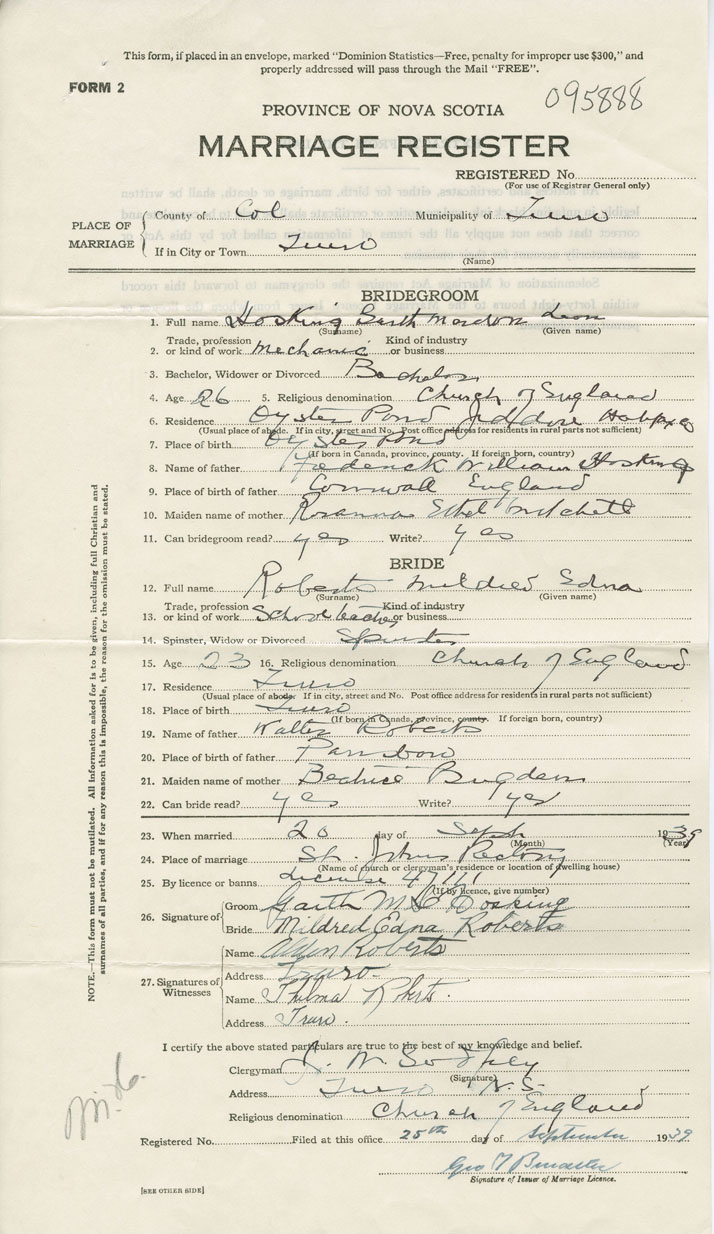 This form, if placed in an envelope, marked "Dominion Statistics—Free, penalty for improper use $300," and
properly addressed will pass through the Mail "FREE".
FORM 2
095888
PROVINCE OF NOVA SCOTIA
MARRIAGE REGISTER
REGISTERED No.
(For use of Registrar General only)
PLACE OF MARRIAGE
County of Col Municipality of Truro
If in City or Town Truro
(Name)
BRIDEGROOM
1. Full name Hosking Garth Leon
(Surname) (Given name)
Trade, profession Kind of industry
2. or kind of work mechanic or business
3. Bachelor, Widower or Divorced Bachelor
4. Age 26 5. Religious denomination Church of England
6. Residence Oyster Pond Jeddore Halifax
(Usual place of abode. If in city, street and No. Post office address for residents in rural parts not sufficient)
7. Place of birth Oyster Pond
(If born in Canada, province, county. If foreign born, country)
8. Name of father Frederick William Hosking
9. Place of birth of father Cornwall England
10. Maiden name of mother Rosanna Ethel Mitchell
11. Can bridegroom read? yes Write? yes
BRIDE
12. Full name Roberts Mildred Edna
(Surname) (Given name)
Trade, profession Kind of industry
13. or kind of work School teacher or business
14. Spinster, Widow or Divorced Spinster
15. Age 23 16. Religious denomination Church of England
17. Residence Truro
(Usual place of abode. If in city, street and No. Post office address for residents in rural parts not sufficient)
18. Place of birth Truro
(If born in Canada, province, county. If foreign born, country)
19. Name of father Walter Roberts
20. Place of birth of father Parrsboro
21. Maiden name of mother Beatrice Bugden
22. Can bride read? yes Write? yes
23. When married 20 day of Sept 1939
(Month) (Year)
24. Place of marriage St. Johns Rectory
(Name of church or clergyman's residence or location of dwelling house)
25. By licence or banns
(If by licence, give number)
26. Signature of
Groom Garth M Hosking
Bride Mildred Edna Roberts
27. Signatures of Witnesses
Name Roberts
Address Truro
Name Thelma Roberts.
Address Truro.
I certify the above stated particulars are true to the best of my knowledge and belief.
Clergyman
(Signature)
Address Truro N.S.
Religious denomination Church of England
Registered No. Filed at this office 25th day of September 1939
Geo
Signature of Issuer of Marriage Licence.
[SEE OTHER SIDE]
NOTE.—This form must not be mutilated. All information asked for is to be given, including full Christian and
surnames of all parties, and if for any reason this is impossible, the reason for the omission must be stated.